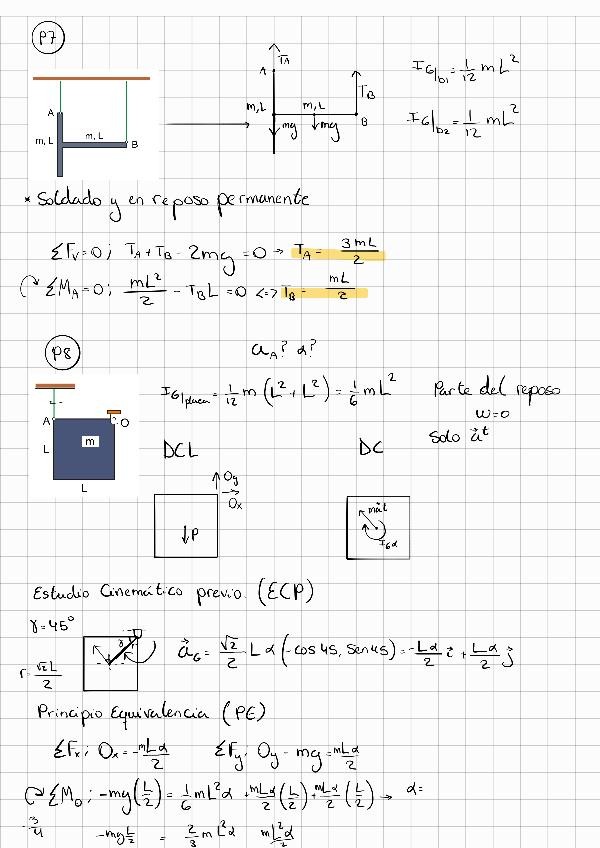 P7
T̄A
A
TB
m,L
m,L
mg
mg
B
I G|b1 = 1/12 mL²
I G|b2 = 1/12 mL²
A
m, L
m, L
B
* Soldado y en reposo permanente
ΣFv=0; TA+TB-2mg=0 → TA = 3mL/2
ΣMA=0; mL²/2 - TBL=0 <=> TB= mL/2
P8
aA? α?
IG|placa = 1/12 m (L²+L²) = 1/6 mL²
Parte del reposo
ω=0
Solo a⃗t
A
O
m
L
L
DCL
DC
Oy
Ox
P
ma⃗t
IGα
Estudio Cinemático previo. (ECP)
γ=45°
γ
r= √2L/2
a⃗G= √2/2 Lα (-cos45, sen45) = -Lα/2 i⃗ + Lα/2 j⃗
Principio Equivalencia (PE)
ΣFx; Ox=-mLα/2 ΣFy; Oy-mg=mLα/2
ΣMO; -mg(L/2) = 1/6 mL²α + mLα/2 (L/2) + mLα/2 (L/2) → α=
-3/4
-mgL/2 = 2/3 mL²α